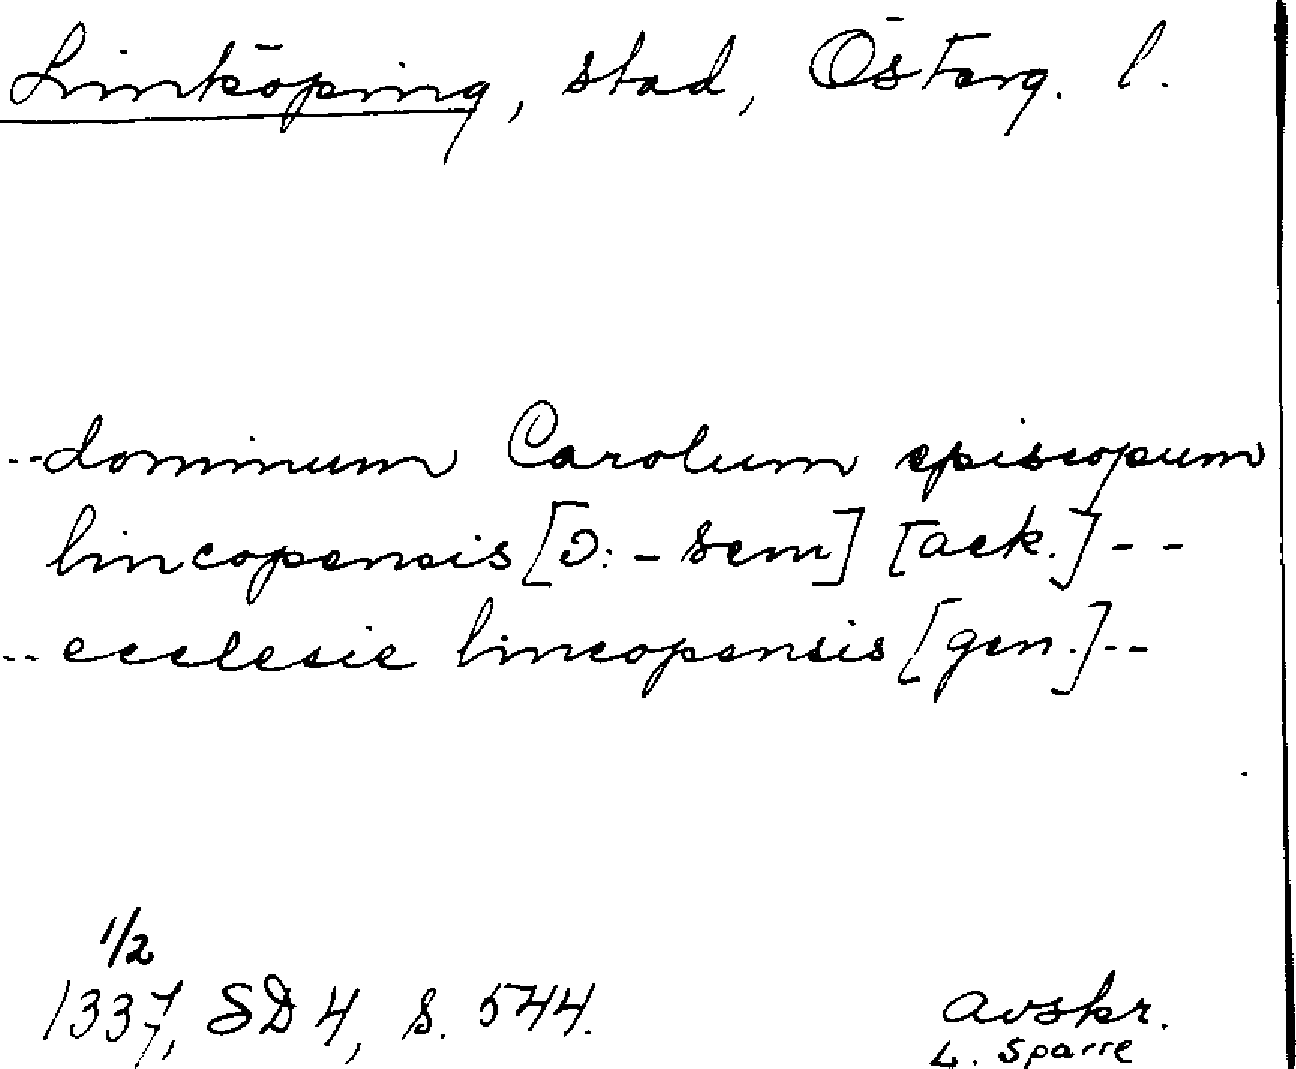 Linköping, stad, Österg. l.
--dominum Carolum episcopum
lincopensis [ɔ: -sem] [ack.] --
--ecclesie lincopensis [gen.]--
1/2
1337, SD 4, s. 544.
Avskr.
L. Sparre